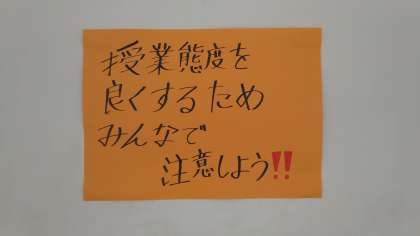 授業態度を
良くするため
みんなで
注意しよう!!